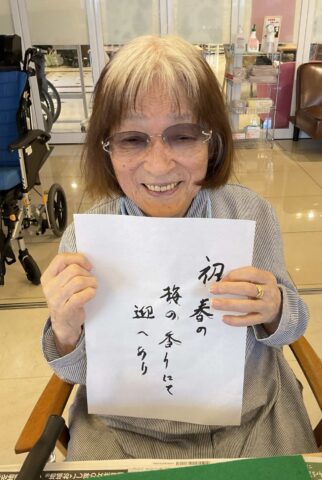 初春の
梅の香りにて
迎へあり